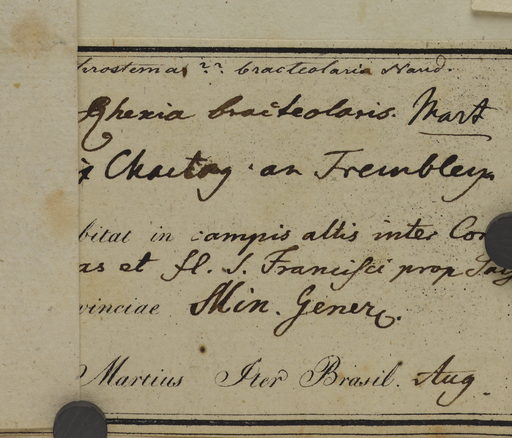 bracteolaria Naud.
Rhexia bracteolaris. Mart
an Trembleya
bitat in campis altis inter Cor
as et fl. S. Francisci prop
vinciae Min. Gener.
Martius Iter Brasil. Aug.